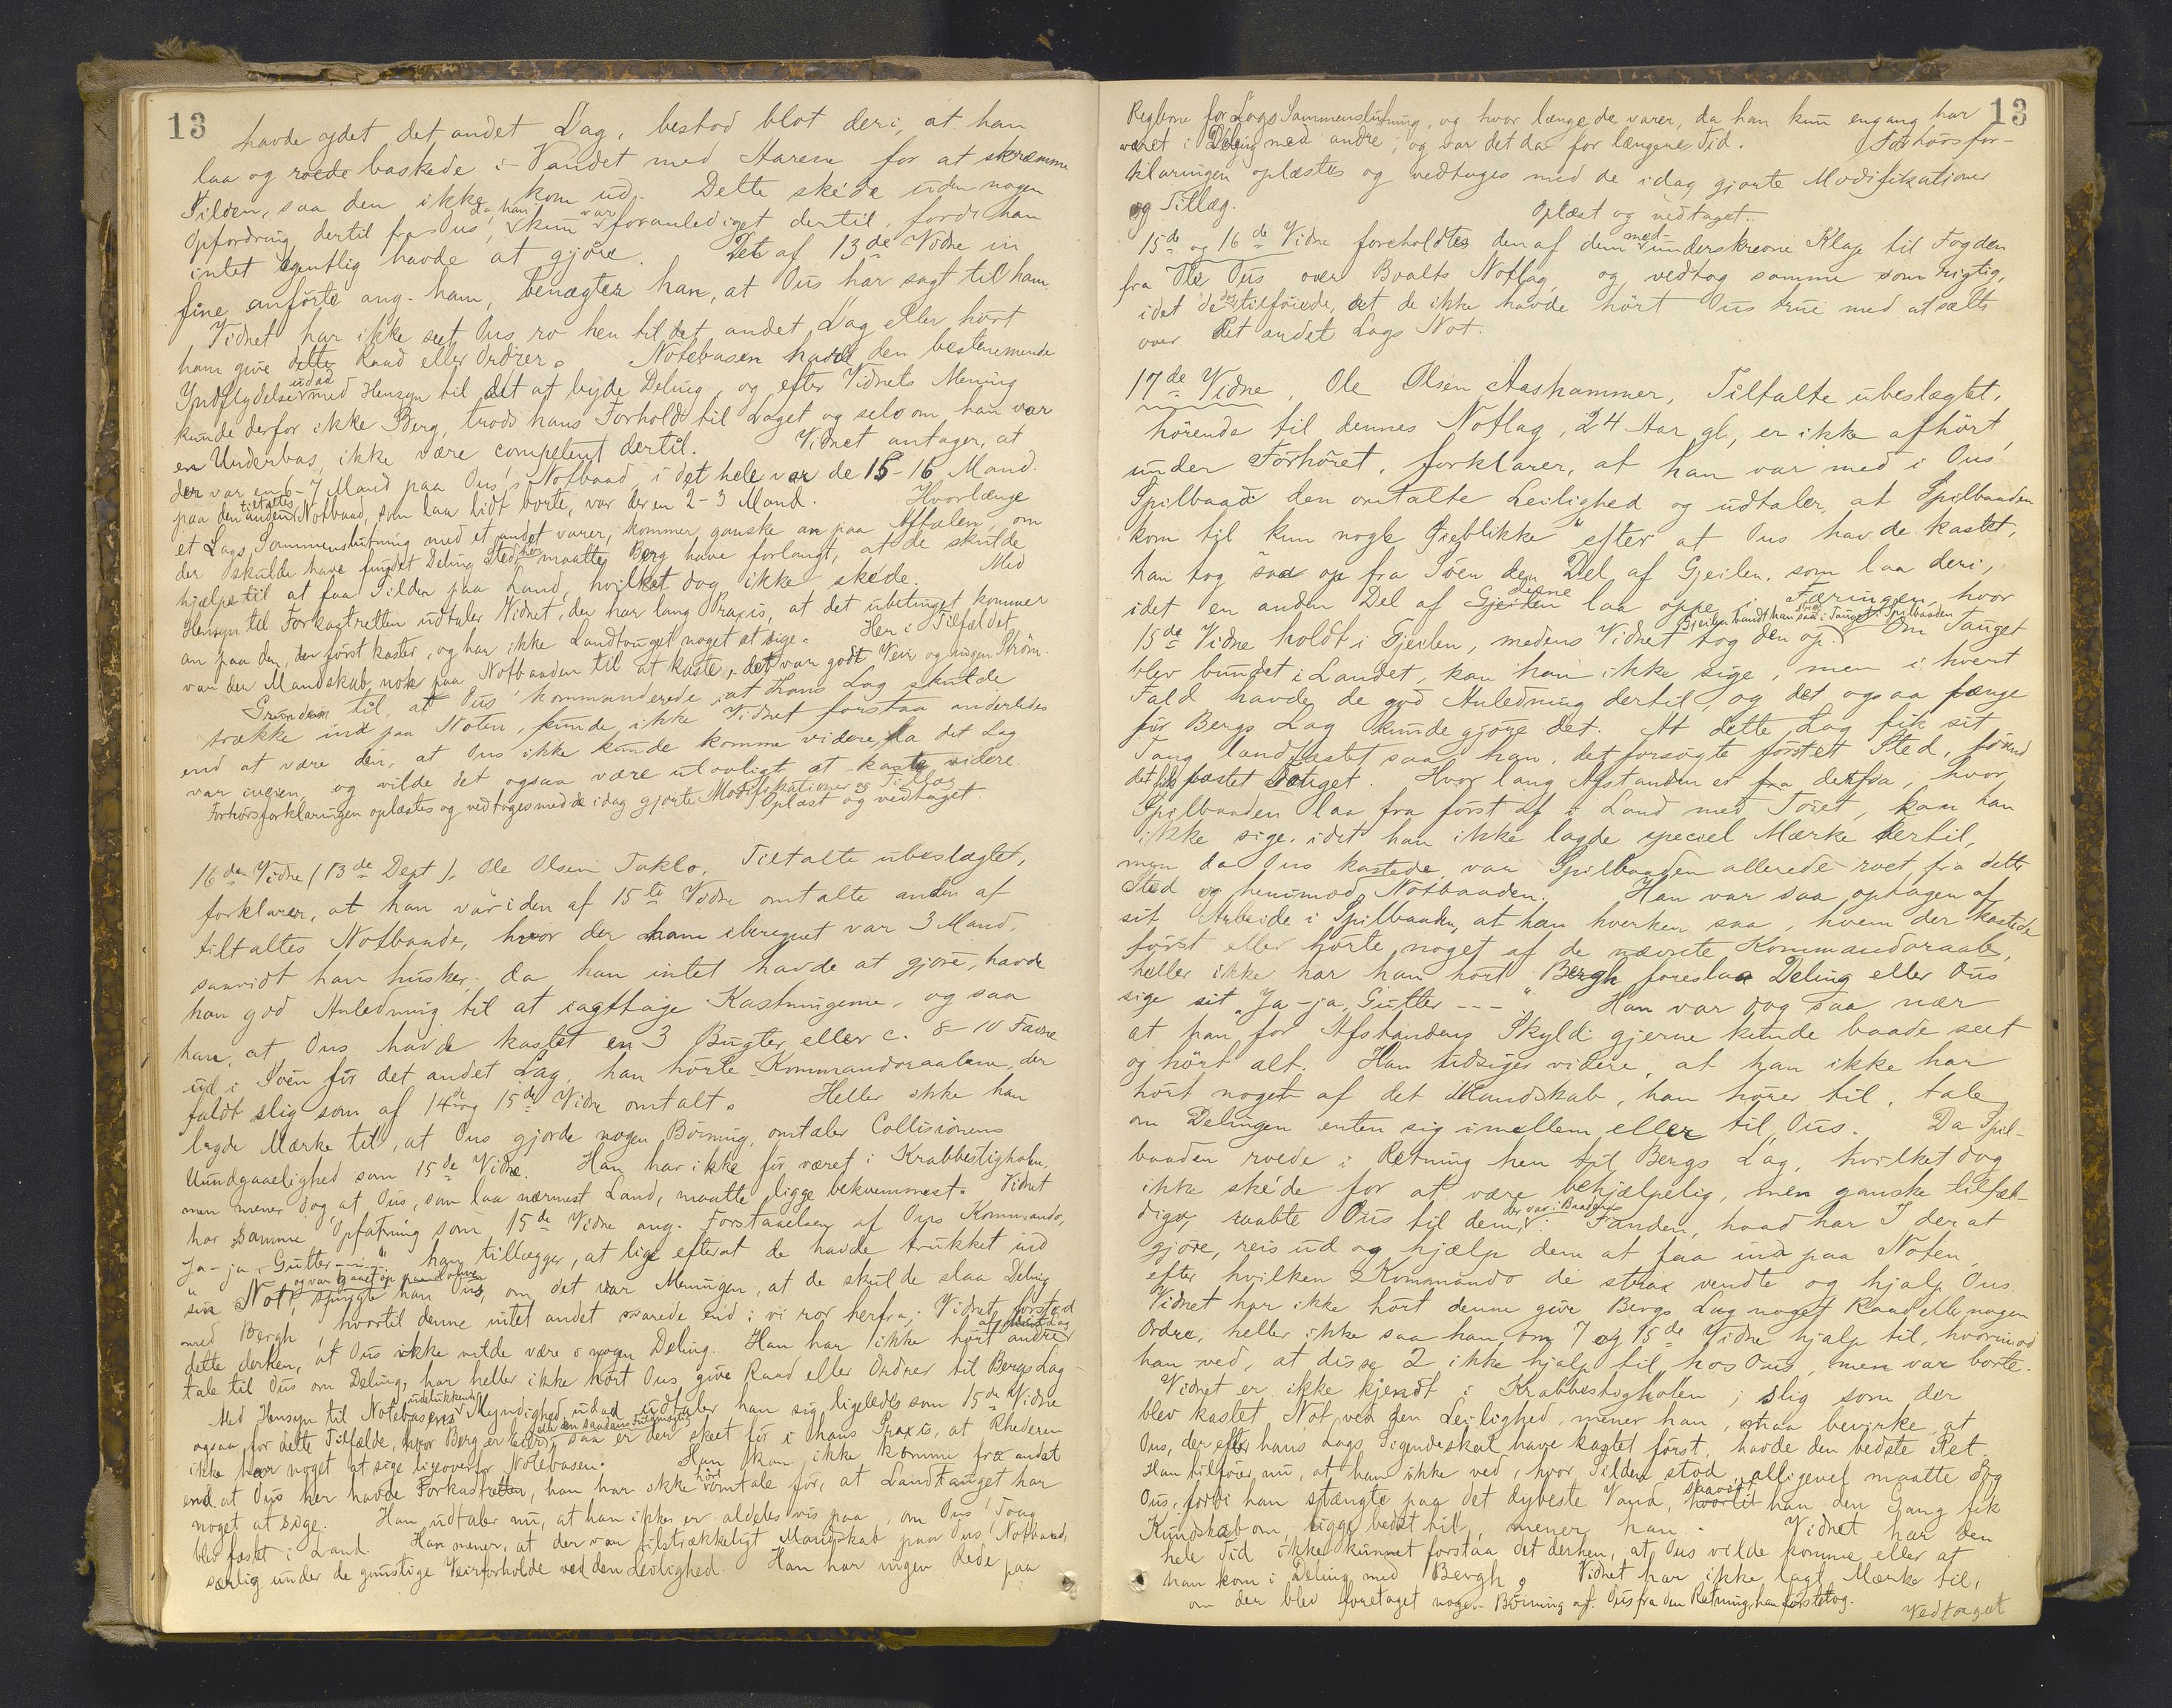 13
havde ydet det andet Lag, bestod blot deri, at han
laa og roede baskede i Vandet med Aarene for at skræmme
Silden, saa den ikke kom ud. Dette skéde uden nogen
Opfordring dertil fra Ous', da han kun var foranlediget dertil, fordi han
intet egentlig havde at gjöre. Det af 13de Vidne in
fine anførte ang. ham, benægter han, at Ous har sagt til ham.
Vidnet har ikke seet Ous ro hen til det andet Lag eller hørt
ham give dette Raad eller Ordrer. Notebasen havde den bestemmende
Indflydelse udad med Hensyn til det at byde Deling, og efter Vidnets Mening
kunde derfor ikke Berg, trods hans Forhold til Laget og selv om han var
en Underbas, ikke være competent dertil. Vidnet antager, at
der var en 6-7 Mand paa Ous's Notbaad, i det hele var de 15-16 Mand.
paa den tiltaltes anden Notbaad, som laa lidt borte, var der en 2-3 Mand. Hvorlænge
et Lags Sammenslutning med et andet varer, kommer ganske an paa Aftalen, om
der skulde have fundet Deling Sted her maatte Berg have forlangt, at de skulde
hjælpe til at faa Silden paa Land, hvilket dog ikke skéde. Med
Hensyn til Forkastretten udtaler Vidnet, der har lang Praxis, at det ubetinget kommer
an paa den, der først kaster, og har ikke Landtouget noget at sige. Her i Tilfældet
var der Mandskab nok paa Notbaaden til at kaste, det var godt Veir og ingen Strøm.
Grunden til, at Ous' kommanderede, at hans Lag skulde
trække ind paa Noten, kunde ikke Vidnet forstaa anderledes
end at være den, at Ous ikke kunde komme videre, da det Lag
var iveien, og vilde det ogsaa være ulovligt at kaste videre.
Forhørsforklaringen oplæstes og vedtoges med de idag gjorte Modifikationer og Tillæg
Oplæst og vedtaget
16de Vidne (13de Dept), Ole Olsen Taklo, Tiltalte ubeslægtet,
forklarer, at han var i den af 15te Vidne omtalte anden af
tiltaltes Notbaade, hvor der ham iberegnet var 3 Mand,
saavidt han husker; da han intet havde at gjøre, havde
han god Anledning til at iagttage Kastningerne, og saa
han, at Ous havde kastet en 3 Bugter eller c. 8-10 Favne
ud i Søen før det andet Lag, han hørte Kommandoraabene, der
faldt slig som af 14de og 15de Vidne omtalt. Heller ikke han
lagde Mærke til, at Ous gjorde nogen Böining, omtaler Collisionens
Uundgaaelighed som 15de Vidne. Han har ikke før været i Krabbestigholen,
men mener dog, at Ous, som laa nærmest Land, maatte ligge bekvemmest. Vidnet
har samme Opfatning som 15de Vidne ang. Forstaaelsen af Ous Kommando,
"Ja-ja, Gutter ---" han tillægger, at lige efterat de havde trukket ind
sin Not, og var gaaet op paa denne spurgte han Ous, om det var Meningen, at de skulde slaa Deling
med Bergh, hvortil denne intet andet svarede end: vi ror herfra; Vidnet forstod
dette derhen, at Ous ikke vilde være i nogen Deling. Han har ikke hørt andre af Laget
tale til Ous om Deling, har heller ikke hørt Ous give Raad eller Ordrer til Bergs Lag
Med Hensyn til Notebasens udelukkende Myndighed udad udtaler han sig ligeledes som 15de Vidne
ogsaa for dette Tilfælde, hvor Berg er Eier, saa er der skeet før i hans Praxis, at Rhederen
ikke har noget at sige ligeoverfor Notebasen. Han kan ikke komme fra andet
end at Ous her havde Forkastretten, han har ikke hørt omtale før, at Landtouget har
noget at sige. Han udtaler nu, at han ikke er aldeles vis paa, om Ous' Toug
blev fæstet i Land. Han mener, at der var tilstrækkeligt Mandskab paa Ous' Notbaad,
særlig under de gunstige Veirforholde ved den Leilighed. Han har ingen Rede paa
13
Reglerne for Lags Sammenslutning, og hvor længe de varer, da han kun engang har
været i Deling med andre, og var det da for længere Tid. Forhørsfor-
klaringen oplæstes og vedtoges med de idag gjorte Modifikationer
og Tillæg. Oplæst og vedtaget.
15de og 16de Vidne foreholdtes den af dem med- underskrevne Klage til Fogden
fra Ole Ous over Boalts Notlag, og vedtog samme som rigtig,
idet de dog tilføiede, at de ikke havde hørt Ous true med at sætte
over det andet Lags Not.
17de Vidne, Ole Olsen Aashammer, Tiltalte ubeslægtet,
hørende til dennes Notlag, 24 Aar gl., er ikke afhørt
under Forhøret, forklarer, at han var med i Ous'
Spilbaad den omtalte Leilighed og udtaler, at Spilbaaden
kom til kun nogle Øieblikke efter at Ous havde kastet,
han tog saa op fra Søen den Del af Gjeilen, som laa deri,
idet en anden Del af Gjeilen denne laa oppe i Færingen, hvor
15de Vidne holdt i Gjeilen, medens Vidnet tog den op. Gjeilen bandt han saa i Touget i Spilbaaden Om Touget
blev bundet i Landet, kan han ikke sige, men i hvert
Fald havde de god Anledning dertil, og det ogsaa længe
før Bergs Lag kunde gjøre det. At dette Lag fik sit
Toug landfæstet saa han, det forsøgte først et Sted, førend
det fik fæstet Touget. Hvor lang Afstanden er fra derfra, hvor
Spilbaaden laa fra først af i Land med Tøiet, kan han
ikke sige, idet han ikke lagde speciel Mærke dertil,
men da Ous kastede, var Spilbaaden allerede roet fra dette
Sted og henimod Notbaaden. Han var saa optagen af
sit Arbeide i Spilbaaden, at han hverken saa, hvem der kastede
først eller hørte noget af de nævnte Kommandoraab,
heller ikke har han hørt Bergh foreslaa Deling eller Ous
sige sit "Ja-ja, Gutter ---" Han var dog saa nær
at han for Afstandens Skyld gjerne kunde baade seet
og hørt alt. Han udsiger videre, at han ikke har
hørt noget af det Mandskab, han hører til, tale
om Delingen enten sig imellem eller til Ous. Da Spil-
baaden roede i Retning hen til Bergs Lag, hvilket dog
ikke skéde for at være behjælpelig, men ganske tilfæl-
digv, raabte Ous til dem, der var i Baaden: Fanden, hvad har I der at
gjöre, reis ud og hjælp dem at faa ind paa Noten,
efter hvilken Kommando de strax vendte og hjalp Ous.
Vidnet har ikke hørt denne give Bergs Lag noget Raad eller nogen
Ordre, heller ikke saa han, om 7 og 15de Vidne hjalp til, hvorimod
han ved, at disse 2 ikke hjalp til hos Ous, men var borte.
Vidnet er ikke kjendt i Krabbestigholen; slig som der
blev kastet Not ved den Leilighed, mener han, maa bevirke, at
Ous, der efter hans Lags Sigende skal have kastet først, havde den bedste Ret.
Han tilføier nu, at han ikke ved, hvor Silden stod, alligevel maatte dog
Ous, fordi han stængte paa det dybeste Vand, saavidt hvorlit han den Gang fik
Kundskab om, ligge bedst til, mener han. Vidnet har den
hele Tid ikke kunnet forstaa det derhen, at Ous vilde komme eller at
han kom i Deling med Bergh. Vidnet har ikke lagt Mærke til,
om der blev foretaget nogen Böining af Ous fra den Retning, han først tog.
Vedtaget